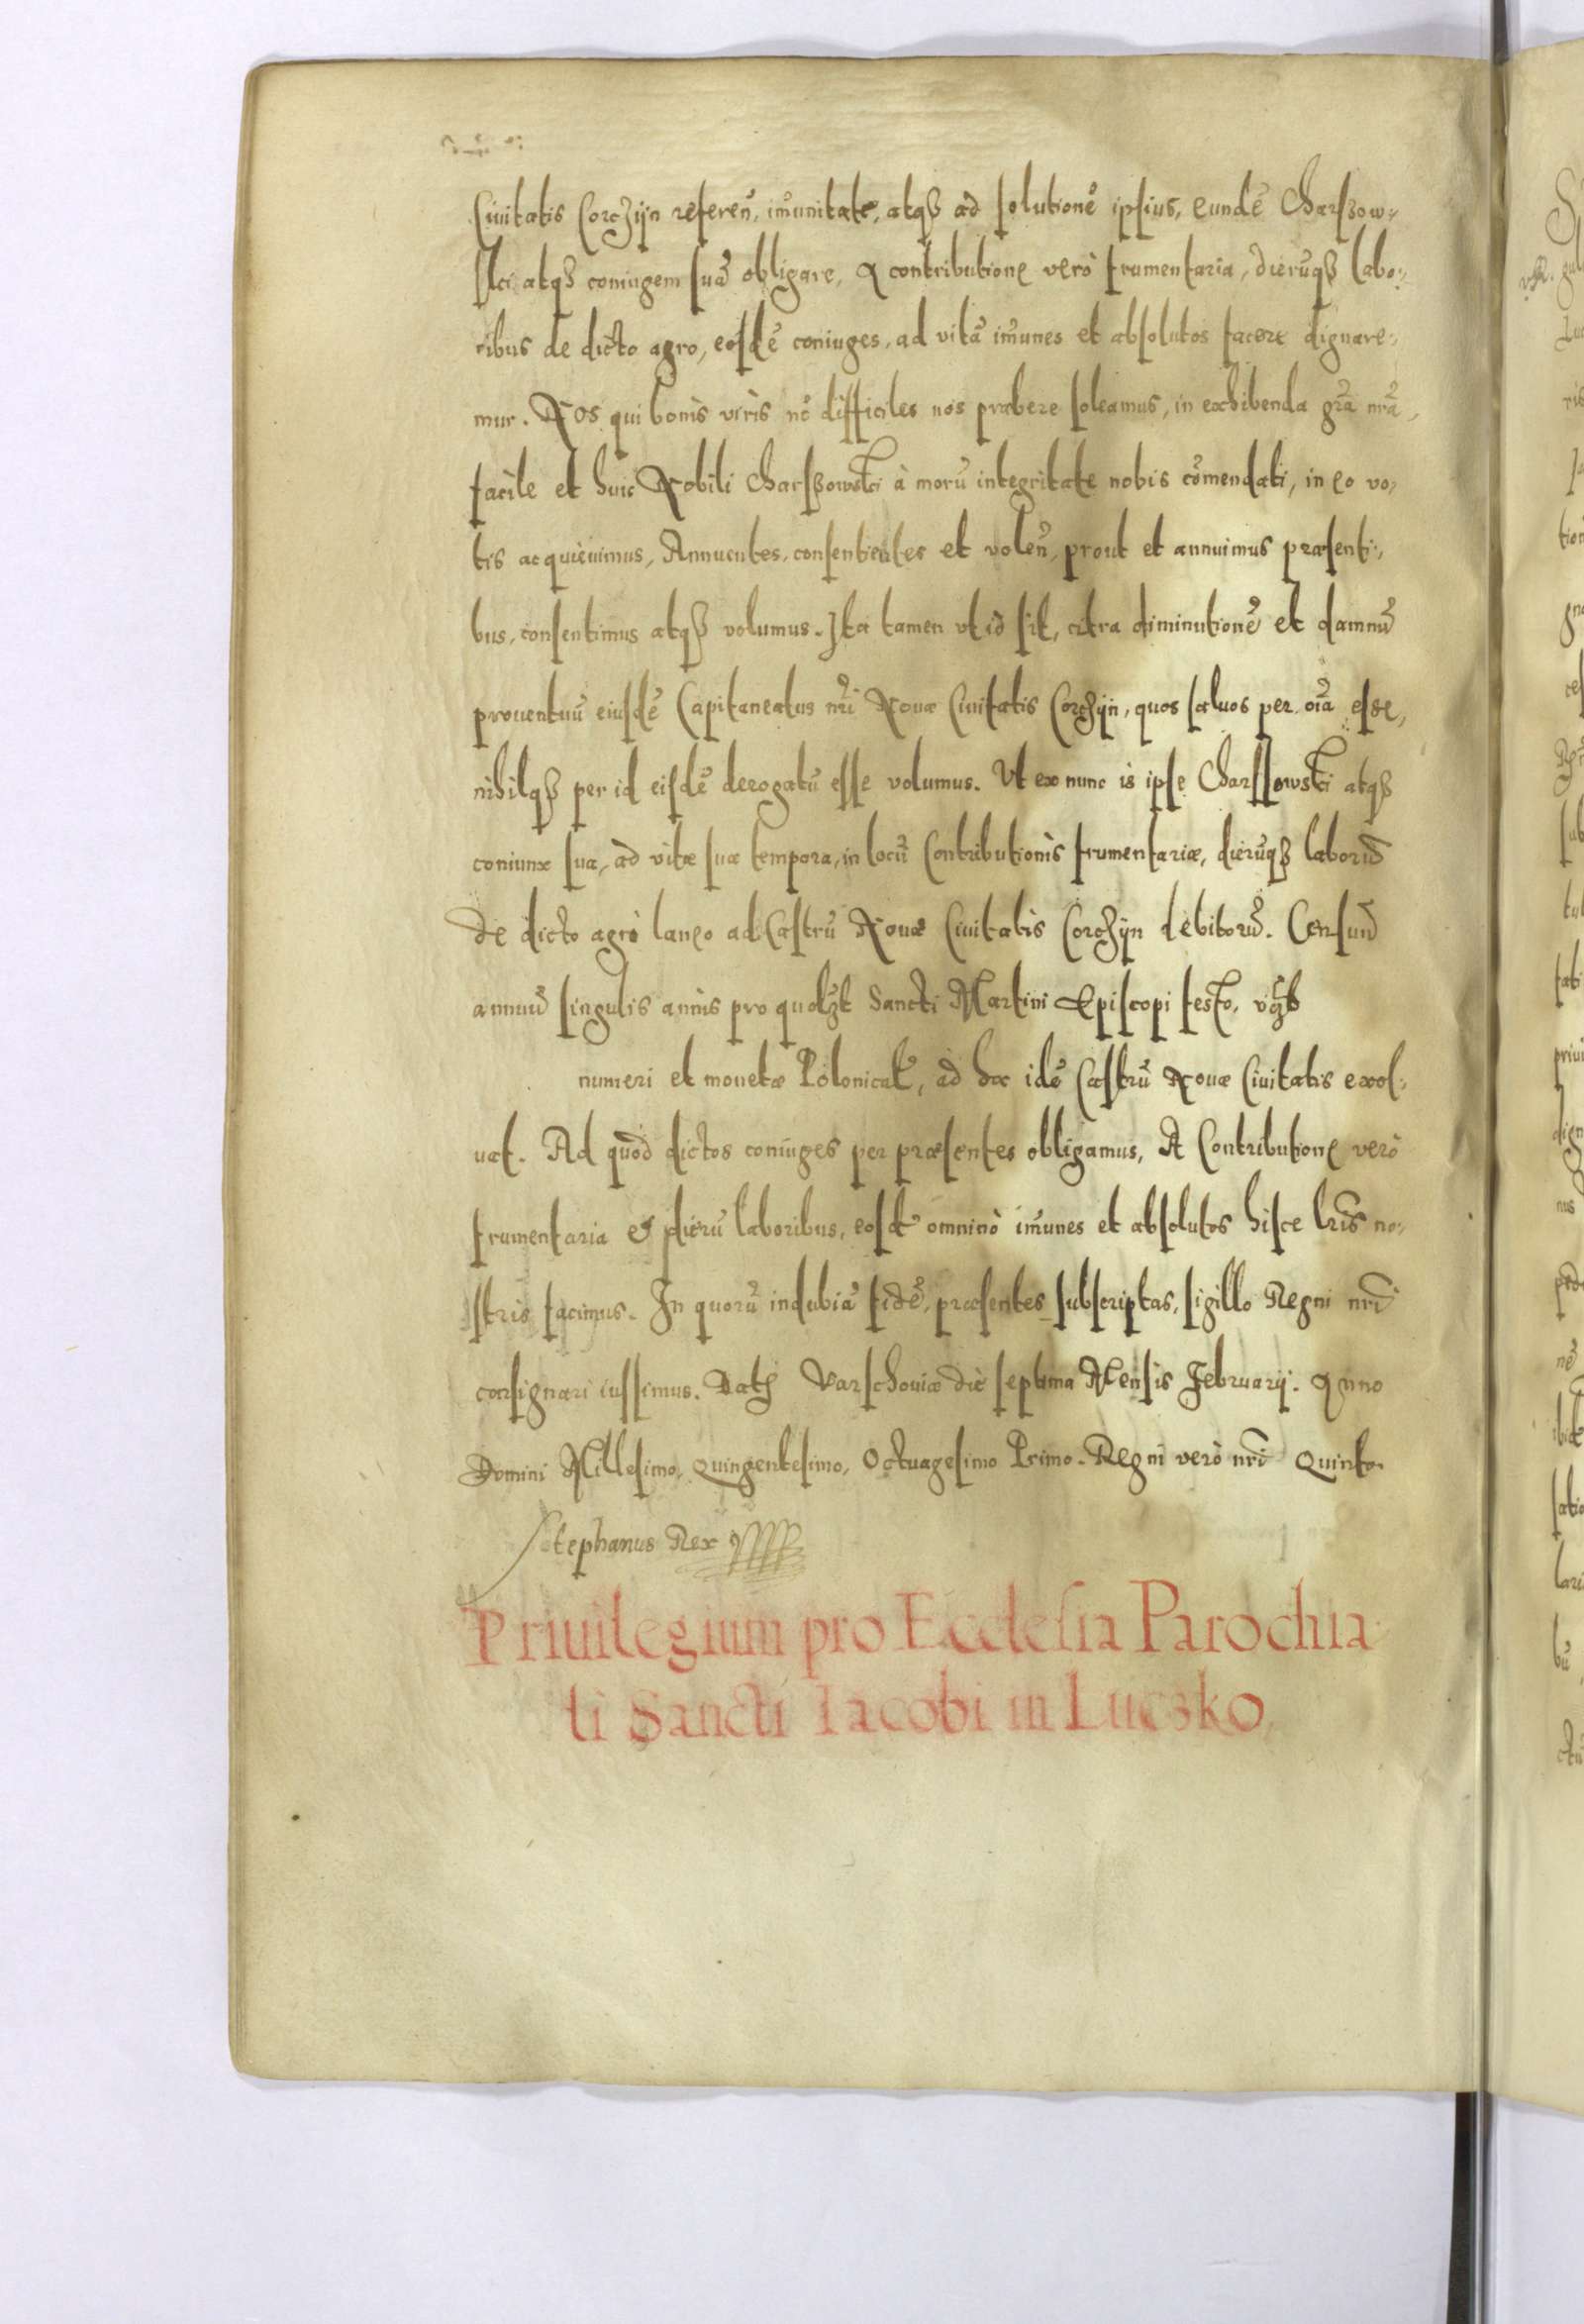 Ciuitatis Corczÿn referen̄, im̄unitate, atqꝫ ad solutionē ipsius, eundē Charszow-
ski atqꝫ coniugem suā obligare, A contributione verò frumentaria, dierūqꝫ labo-
ribus de dicto agro, eosdē coniuges, ad vitā im̄unes et absolutos facere dignare-
mur. Nos qui bonis viris nō difficiles nos præbere soleamus, in exhibenda gr̄a nr̄a,
facile et huic Nobili Charszowski à morū integritate nobis com̄endati, in eo vo-
tis acquieuimus, Annuentes, consentientes et volen̄, prout et annuimus præsenti-
bus, consentimus atqꝫ volumus. Ita tamen vt id sit, citra diminutionē et damnū
prouentuū eiusdē Capitaneatus nr̄i Nouæ Ciuitatis Corczÿn, quos saluos per oīa esse,
nihilqꝫ per id eisdē derogatū esse volumus. Vt ex nunc is ipse Charssowski atqꝫ
coniunx sua, ad vitæ suæ tempora, in locū Contributionis frumentariæ, dierūqꝫ laborū
de dicto agri laneo ad Castrū Nouæ Ciuitatis Corczÿn debitorū. Censum
annuū singulis annis pro quolꝫt Sancti Martini Episcopi festo,
numeri et monetæ Polonical̄, ad hoc idē Castrū Nouæ Ciuitatis exol-
uat. Ad quod dictos coniuges per præsentes obligamus, A Contributione verò
frumentaria et dierū laboribus, eosdē omninò im̄unes et absolutos hisce lr̄is no-
stris facimus. In quorū indubiā fidē, præsentes subscriptas, sigillo Regni nr̄i
consignari iussimus. Datꝫ Varschouiæ die septima Mensis Februarij. Anno
Domini Millesimo, Quingentesimo, Octuagesimo Primo. Regni verò nr̄i Quinto.
Stephanus Rex
Priuilegium pro Ecclesia Parochia
li Sancti Iacobi in Luczko